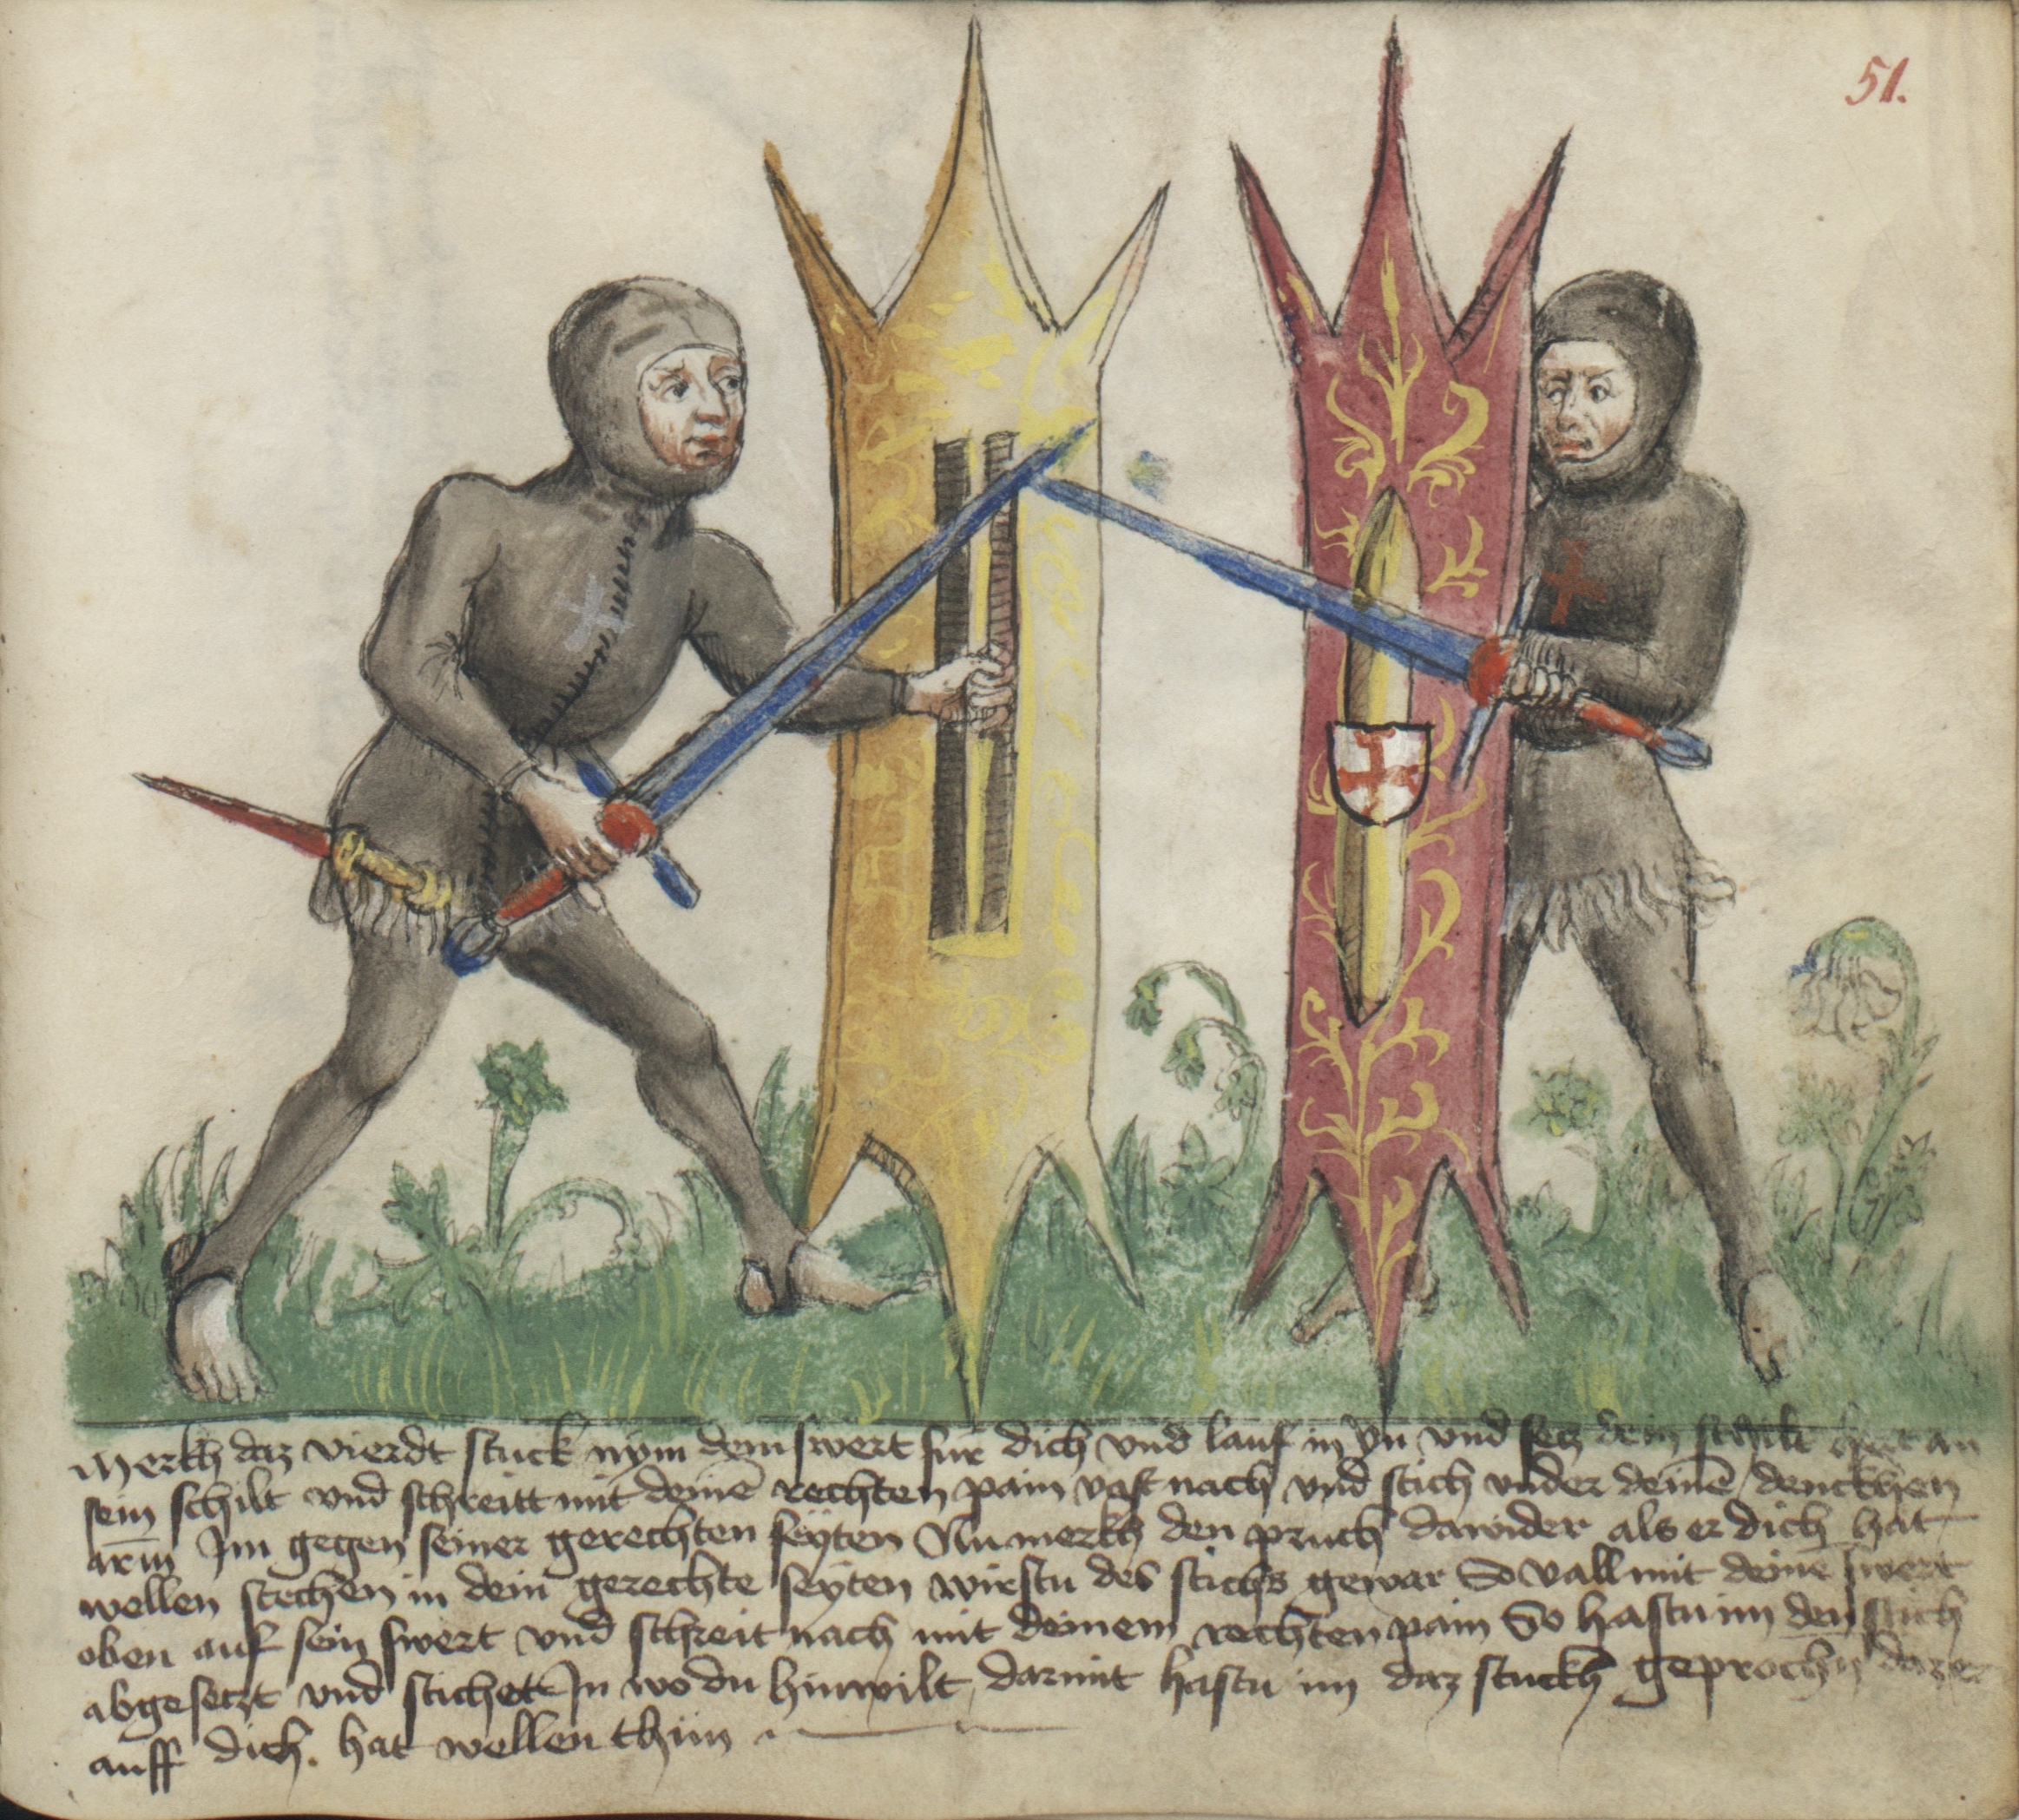 51.
Merkh daz vierdt stuck nym dein swert für dich vnd lauf in yn vnd secz dein schilt an
sein schilt vnd schreitt mit deinē rechten pain vast nach vnd stich vnder deinē denckhen
arm Im gegen seiner gerechten seyten Nu merkh den pruch dawider als er dich hat
wellen stechen in dein gerechte seyten wirstu des stichs gewar So vall mit deinē swert
oben auf sein swert vnd schreit nach mit deinem rechten pain So hastu im den stich
abgeseczt vnd stichet In wo du hin wilt, darmit hastu im daz stuckh geprochn daz er
auff dich. hat wellen thün